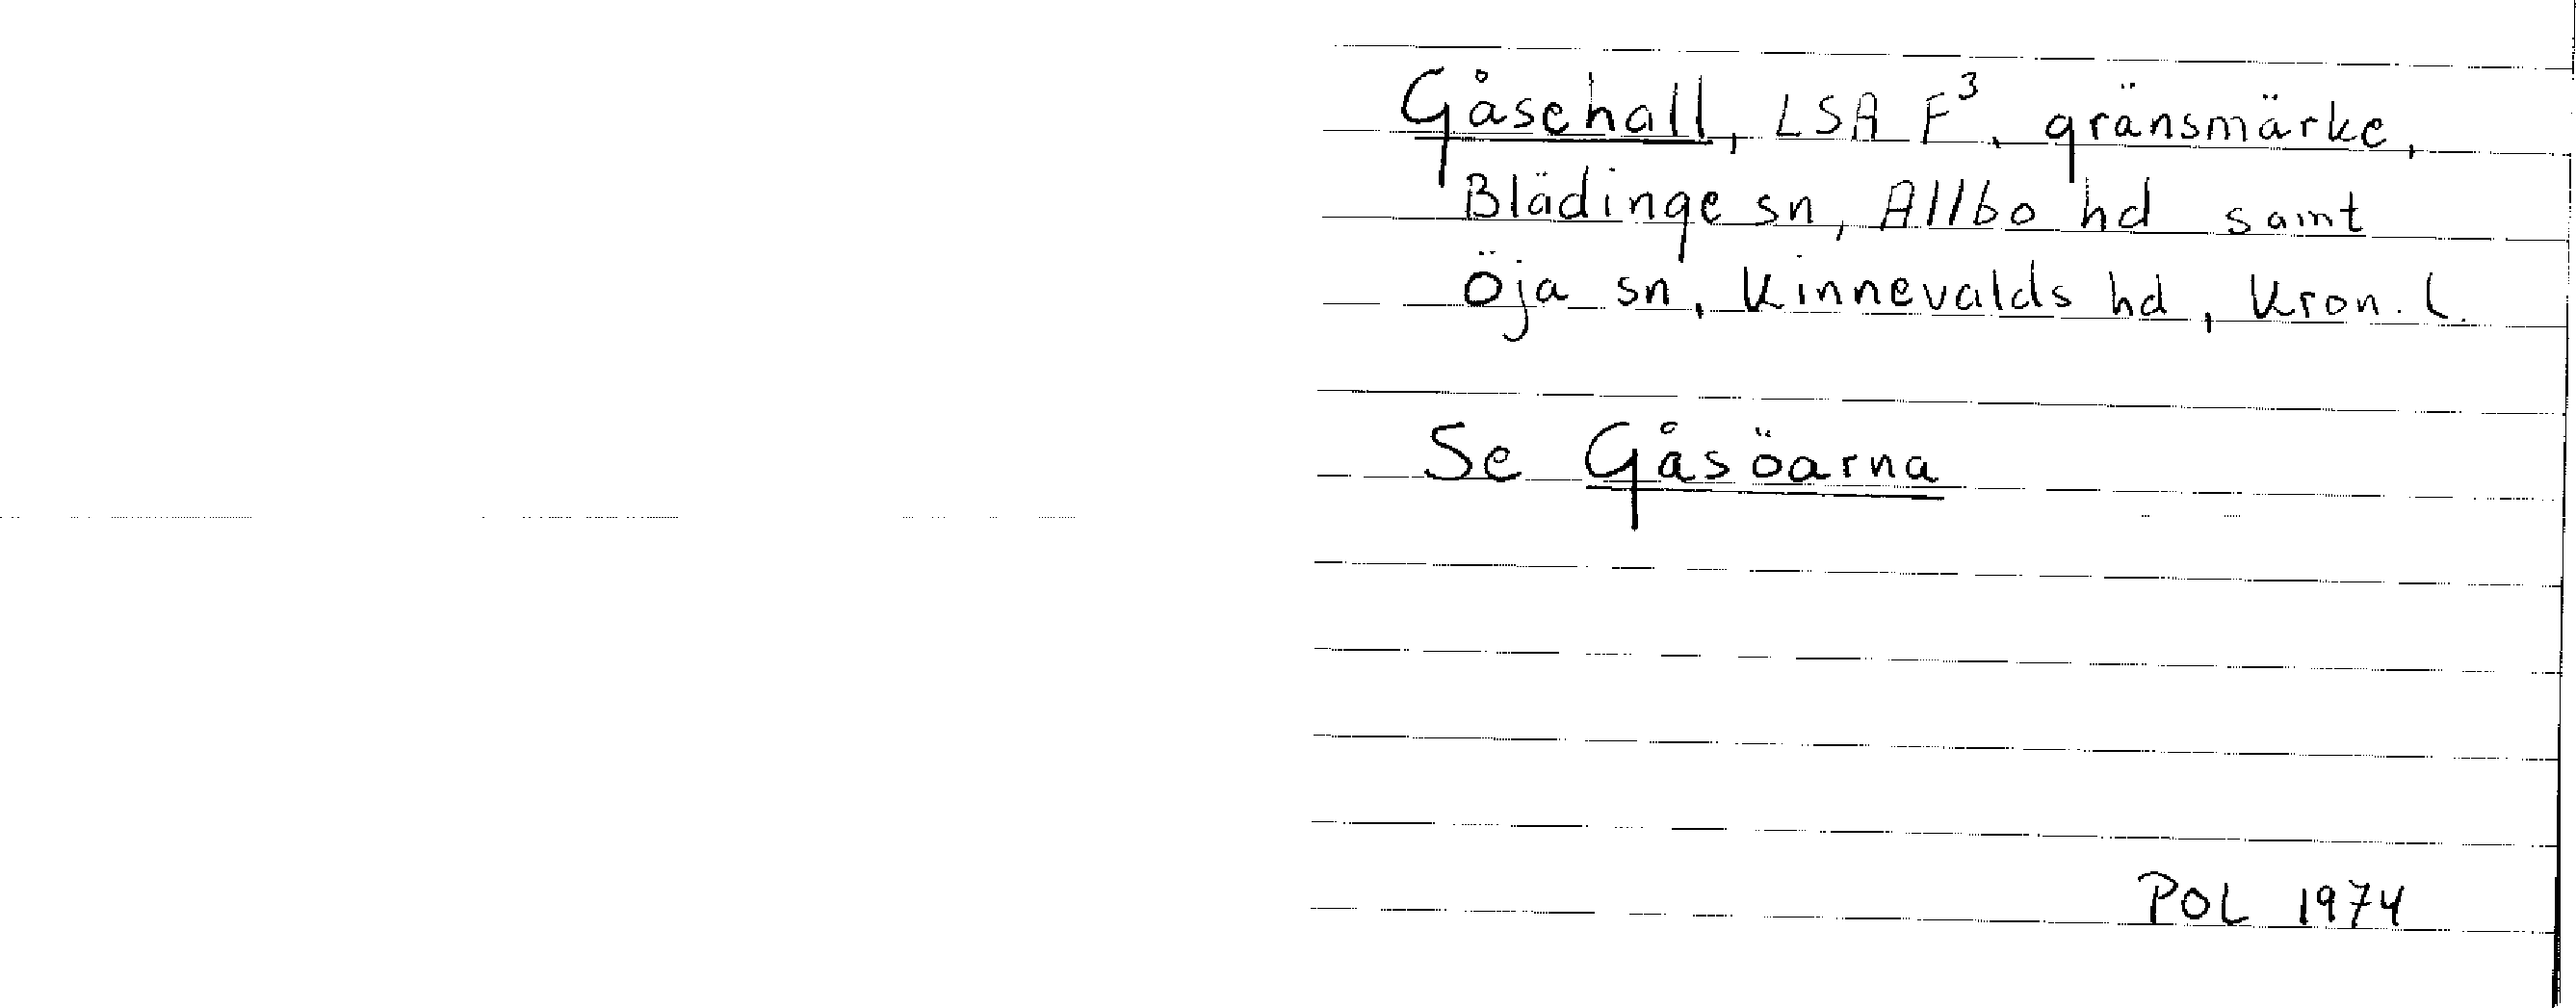 Gåsehall, LSA F³, gränsmärke,
Blädinge sn, Allbo hd samt
Öja sn, Kinnevalds hd, Kron. l.
Se Gåsöarna
POL 1974